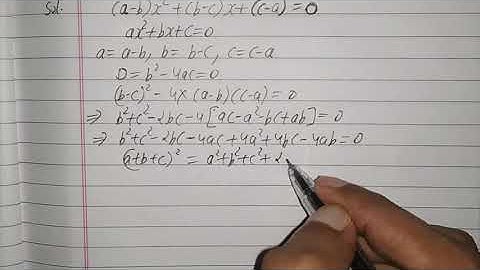 Sol. (a-b)x²+(b-c)x+(c-a)=0
ax²+bx+c=0
a=a-b, b=b-c, c=c-a
D=b²-4ac=0
(b-c)²-4×(a-b)(c-a)=0
⇒ b²+c²-2bc-4[ac-a²-bc+ab]=0
⇒ b²+c²-2bc-4ac+4a²+4bc-4ab=0
(a+b+c)² = a²+b²+c²+2